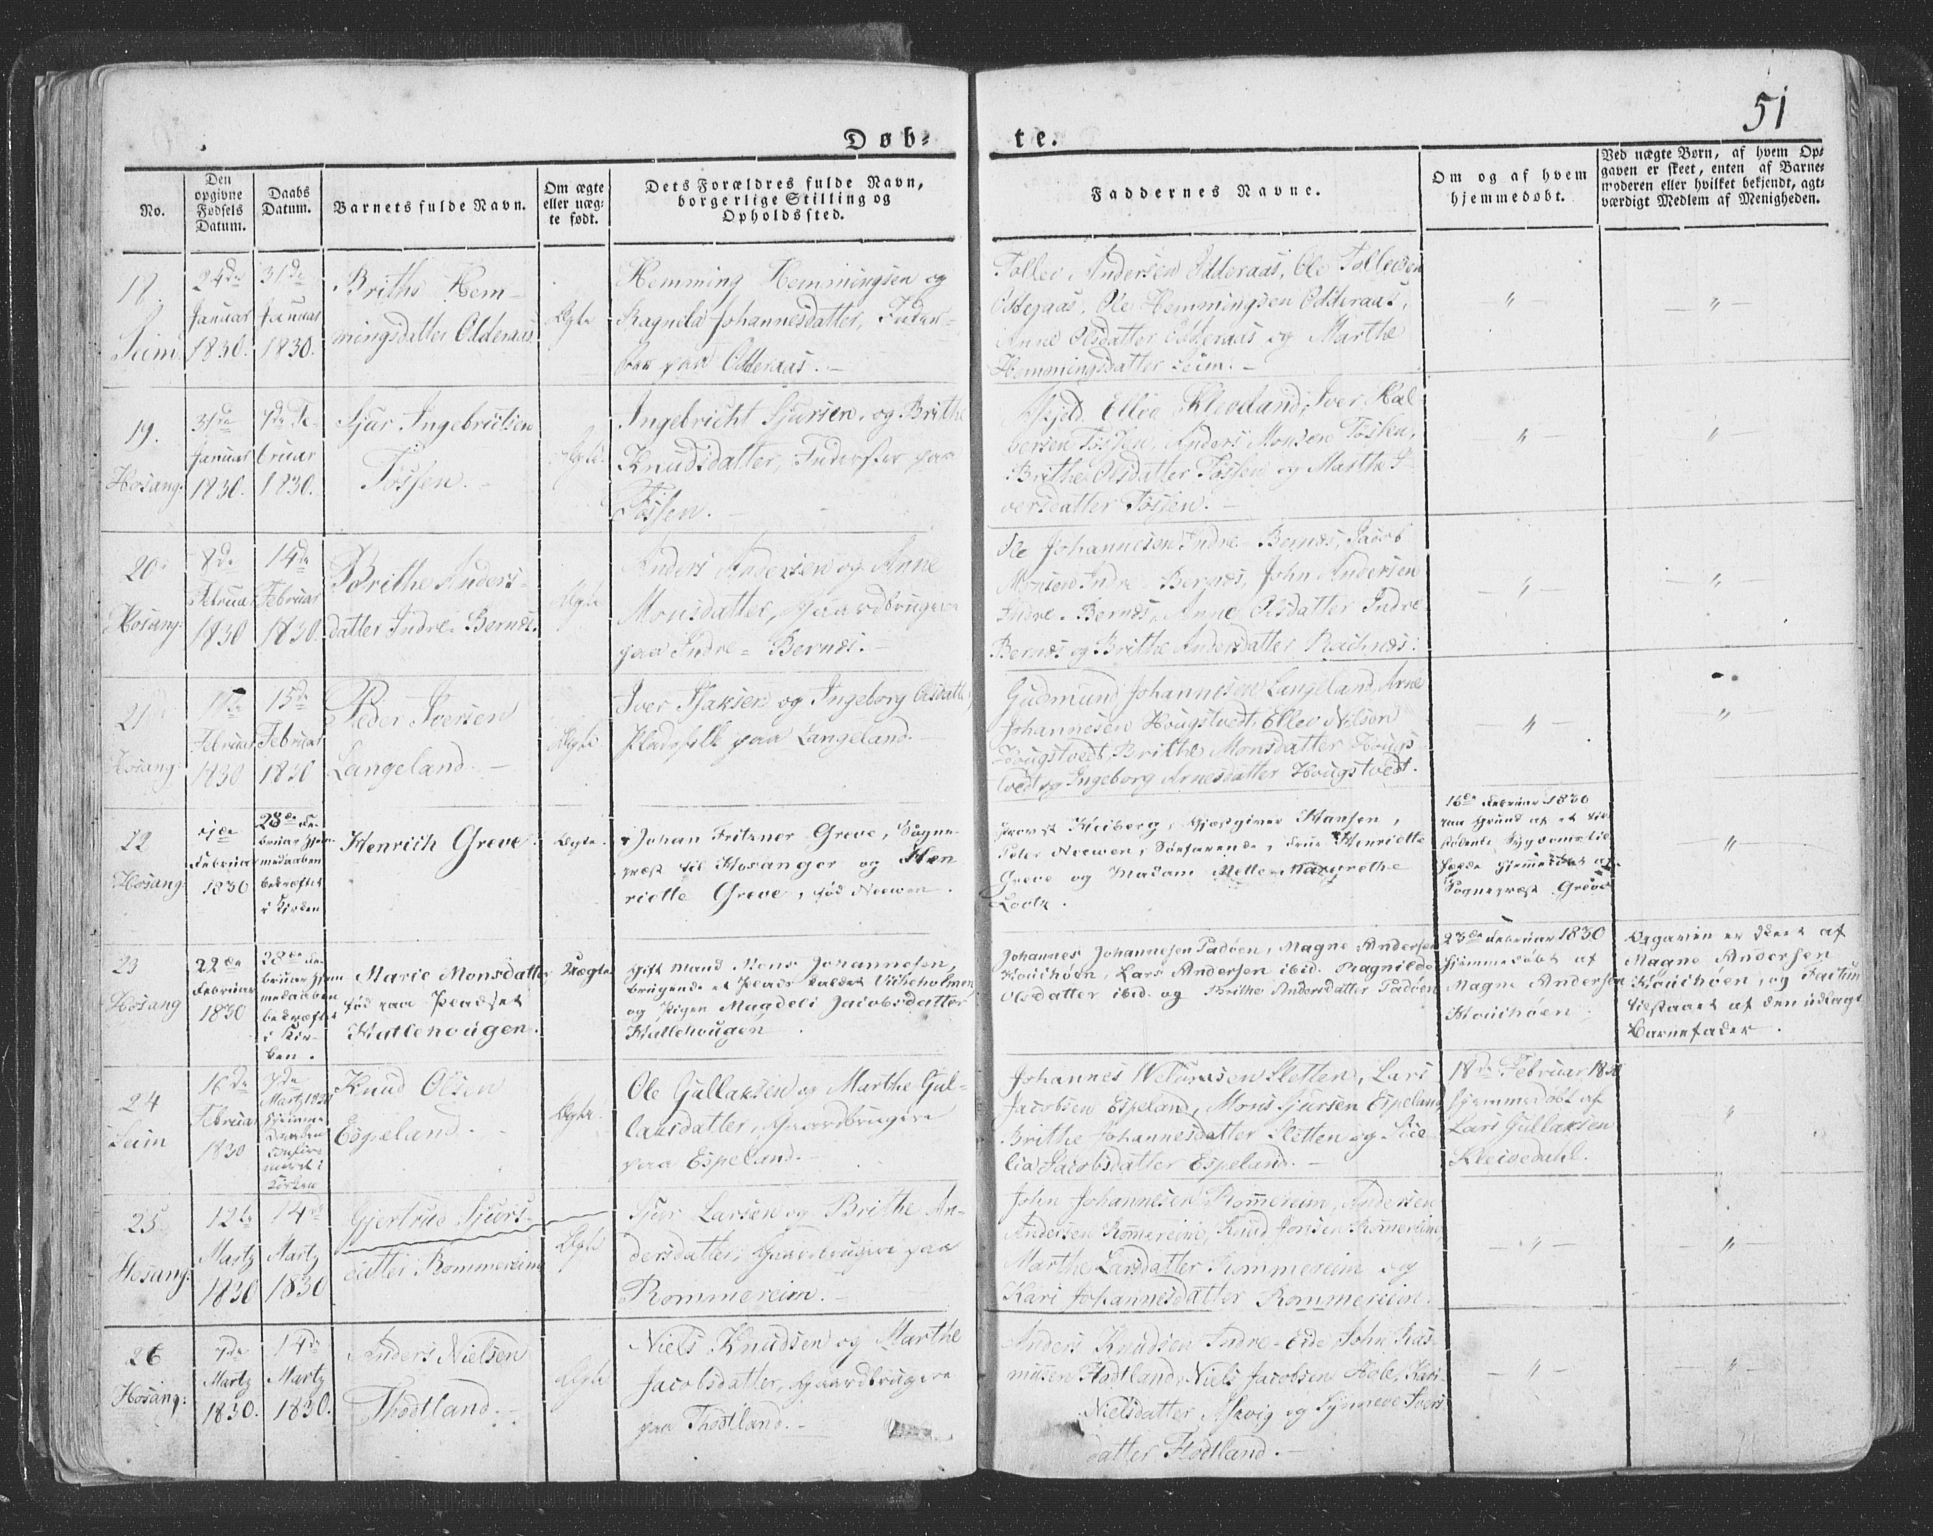 51
Døb-
te.
No.
Den
opgivne
Fødsels
Datum.
Daabs
Datum.
Barnets fulde Navn.
Om ægte
eller uæg-
te født.
Dets Forældres fulde Navn,
borgerlige Stilling og
Opholdssted.
Faddernes Navne.
Om og af hvem
hjemmedøbt.
Ved uægte Børn, af hvem Op-
gaven er skeet, enten af Barne-
moderen eller hvilket bekjendt, agt-
værdigt Medlem af Menigheden.
18.
Seim
24de
Januar
1830.
31de
Januar
1830.
Brithe Hem-
mingsdatter Odderaas
Ægte
Hemming Hemmingsen og
Ragnela Johannesdatter, Inder-
paa Odderaas.
Tollev Andersen Odderaas, Ole Tollevsen
Odderaas, Ole Hemmingsen Odderaas,
Anne Olsdatter Odderaas og Marthe
Hemmingsdatter Seim.
19.
Hosang:
31de
Januar
1830.
7de Fe-
bruar
1830.
Sjur Ingebrictsen
Tossen.
Ægte
Ingebricht Sjursen og Brithe
Knudsdatter, Inderster paa
Tossen.
Ellev Kleveland, Iver Hal-
versen Tossen, Anders Monsen Tossen,
Brithe Olsdatter Tossen og Marthe I-
versdatter Tossen.
20.
Hosang:
8de
Februar
1830
14de
Februar
1830.
Brithe Anders-
datter Indre-Bernæs.
Ægte
Anders Andersen og Anne
Monsdatter, Gaardbrugere
paa Indre-Bernæs.
Ole Johannesen Indre-Bernæs, Jacob
Monsen Indre Bernæs, John Andersen
Indre-Bernæs, Anne Olsdatter Indre
Bernæs og Brithe Andersdatter
21.
Hosang:
Februar
1830
15de
Februar
1830
Peder Iversen
Langeland.
Ægte
Iver Isaksen og Ingeborg Olsdatter,
Pladsfolk paa Langeland.
Gudmund Johannesen Langeland, Arne
Johannesen Hougstvedt, Ellev Nilsen
Hougstvedt, Brithe Monsdatter Hougs-
tvedt og Ingeborg Arnesdatter Hougstvedt.
22
Hosang:
Februar
1830
28de Fe-
bruar hjem-
medaaben
bekræftet
i Kirken
Henrich Greve.
Ægte.
Johan Fritzner Greve, Sogne-
præst til Hosanger og Hen-
riette Greve, fød Neewen.
Provst Heiberg, Hansen,
Peter Neewen, Søefarende, Frue Henriette
Greve og Madam Mette Margrethe
16de Februar 1830
paa Grund af et til-
stødende Sygdomstil-
fælde hjemmedøbt af
Sognepræst Greve
23
Hosang
22de
Februar
1830
28de Fe-
bruar hjem-
medaaben
bekræftet
i Kir-
ken.
Marie Monsdatter
fød paa Pladset
Hatlehougen.
Uægte
Gift Mand Mons Johannesen,
brugende et Plads kaldet
og Pigen Magdeli Jacobsdatter
Hatlehougen.
Johannes Johannesen Tadøen, Magne Andersen
Kouihøen, Lars Andersen ibid. Ragnilde
Olsdatter ibid. og Brithe Andersdatter Tadøen
23de Februar 1830
hjemmedøbt af
Magne Andersen
Kouihøen.
Opgaven er skeet af
Magne Andersen
Kouihøen, og Factum
tilstaaet af den udlagte
Barnefader.
24
Seim
16de
Februar
1830
7de
Martz 1830
hjemme
Daaben
confir-
meret i
Kirken
Knud Olsen
Espeland.
Ægte.
Ole Gullaksen og Marthe Gul-
laksdatter, Gaardbrugere
paa Espeland.
Johannes Sletten, Lars
Jacobsen Espeland, Mons Sjursen Espeland
Brithe Johannesdatter Sletten og Sise-
lia Jacobsdatter Espeland.
18de Februar 1830
hjemmedøbt af
Lars Gullaksen
Kleivedahl.
25.
Hosang:
12te
Martz
1830
14de
Martz
1830
Gjertrud Sjurs-
datter Rommereim
Ægte
Sjur Larsen og Brithe An-
dersdatter, Gaardbrugere paa
Rommereim.
John Johannesen Rommereim, Andersen
Andersen Rommereim, Knud Jonsen Rommereim
Marthe Larsdatter Rommereim og
Kari Johannesdatter Rommereim.
26
Hosang:
7de
Martz
1830.
14de
Martz
1830.
Anders Nielsen
Thodtland.
Ægte
Niels Knudsen og Marthe
Jacobsdatter, Gaardbrugere
paa Thodtland.
Anders Knudsen Indre-Eide, John Ras-
mussen Hodtland, Niels Jacobsen Hole, Kari
Nielsdatter Askvig og Synneve Ivers
datter Hodtland.